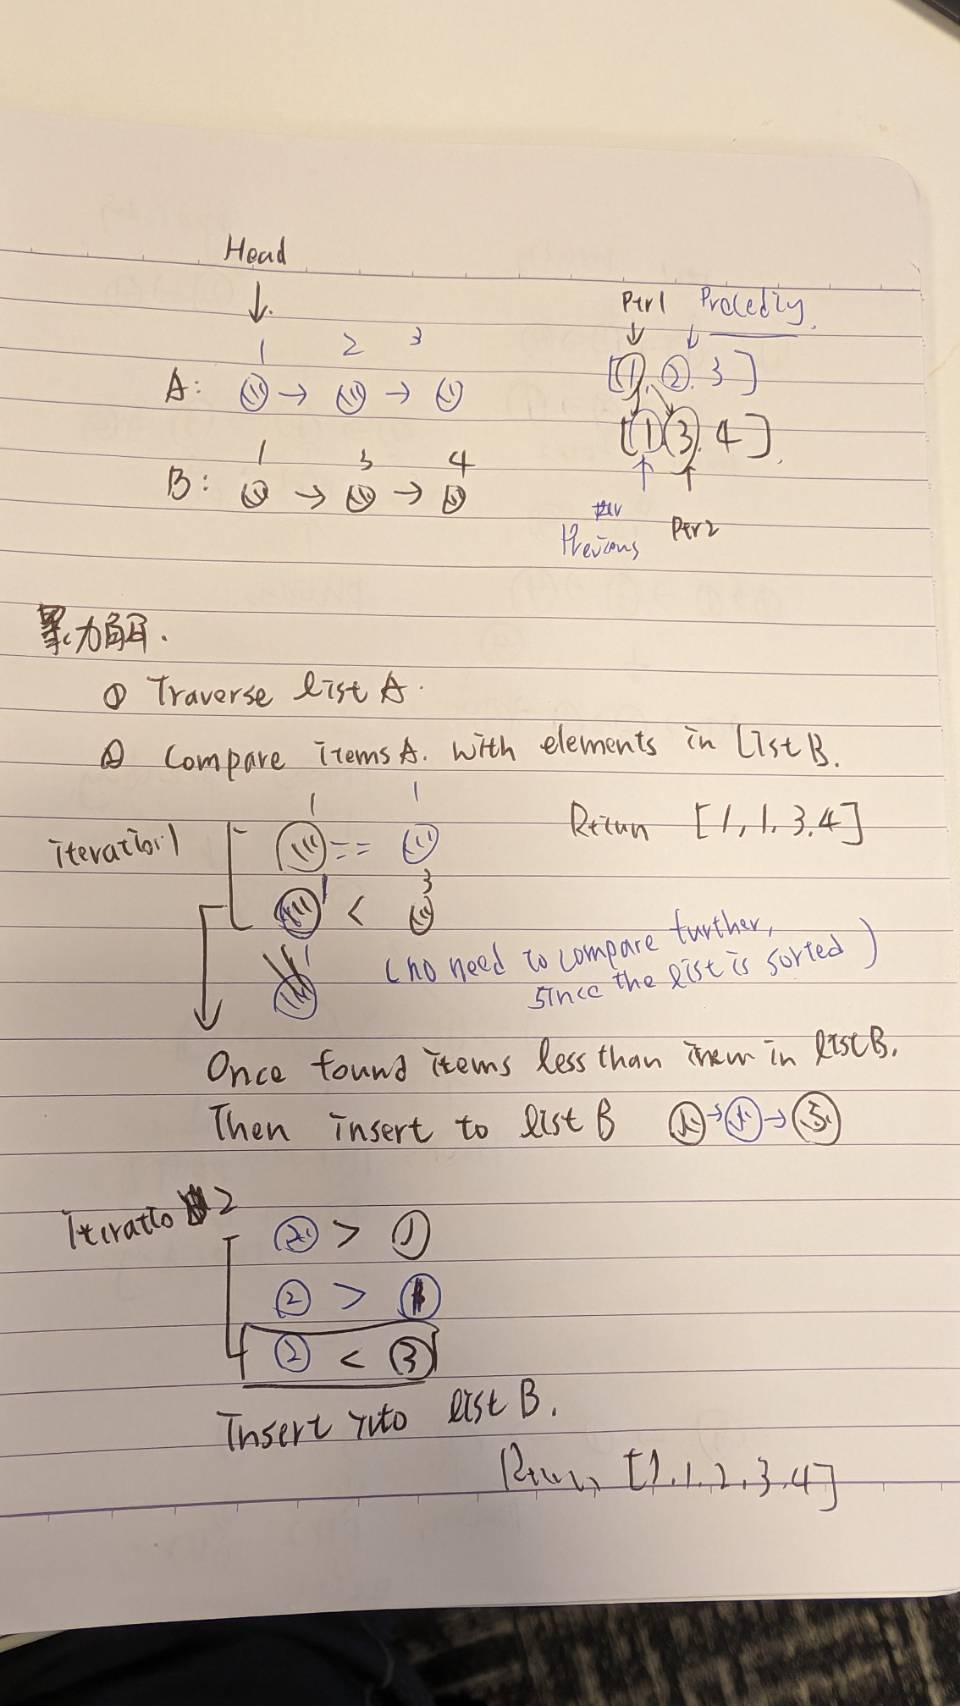 Head
↓
1 2 3
A: ① → ① → ①
1 3 4
B: ① → ① → ①
Ptr1
↓ ↓
[①, ②, 3]
[① ③, 4]
↑ ↑
Previous Ptr2
暴力解.
① Traverse list A.
② Compare items A. with elements in List B.
Return [1, 1, 3, 4]
iteration 1
1 == 1
1 < 3
1
(no need to compare further,
since the list is sorted)
Once found items less than item in list B.
Then insert to list B ① → ① → ③
Iteratio 2
② > ①
② > ①
② < ③
Insert into list B.
Return [1, 1, 2, 3, 4]